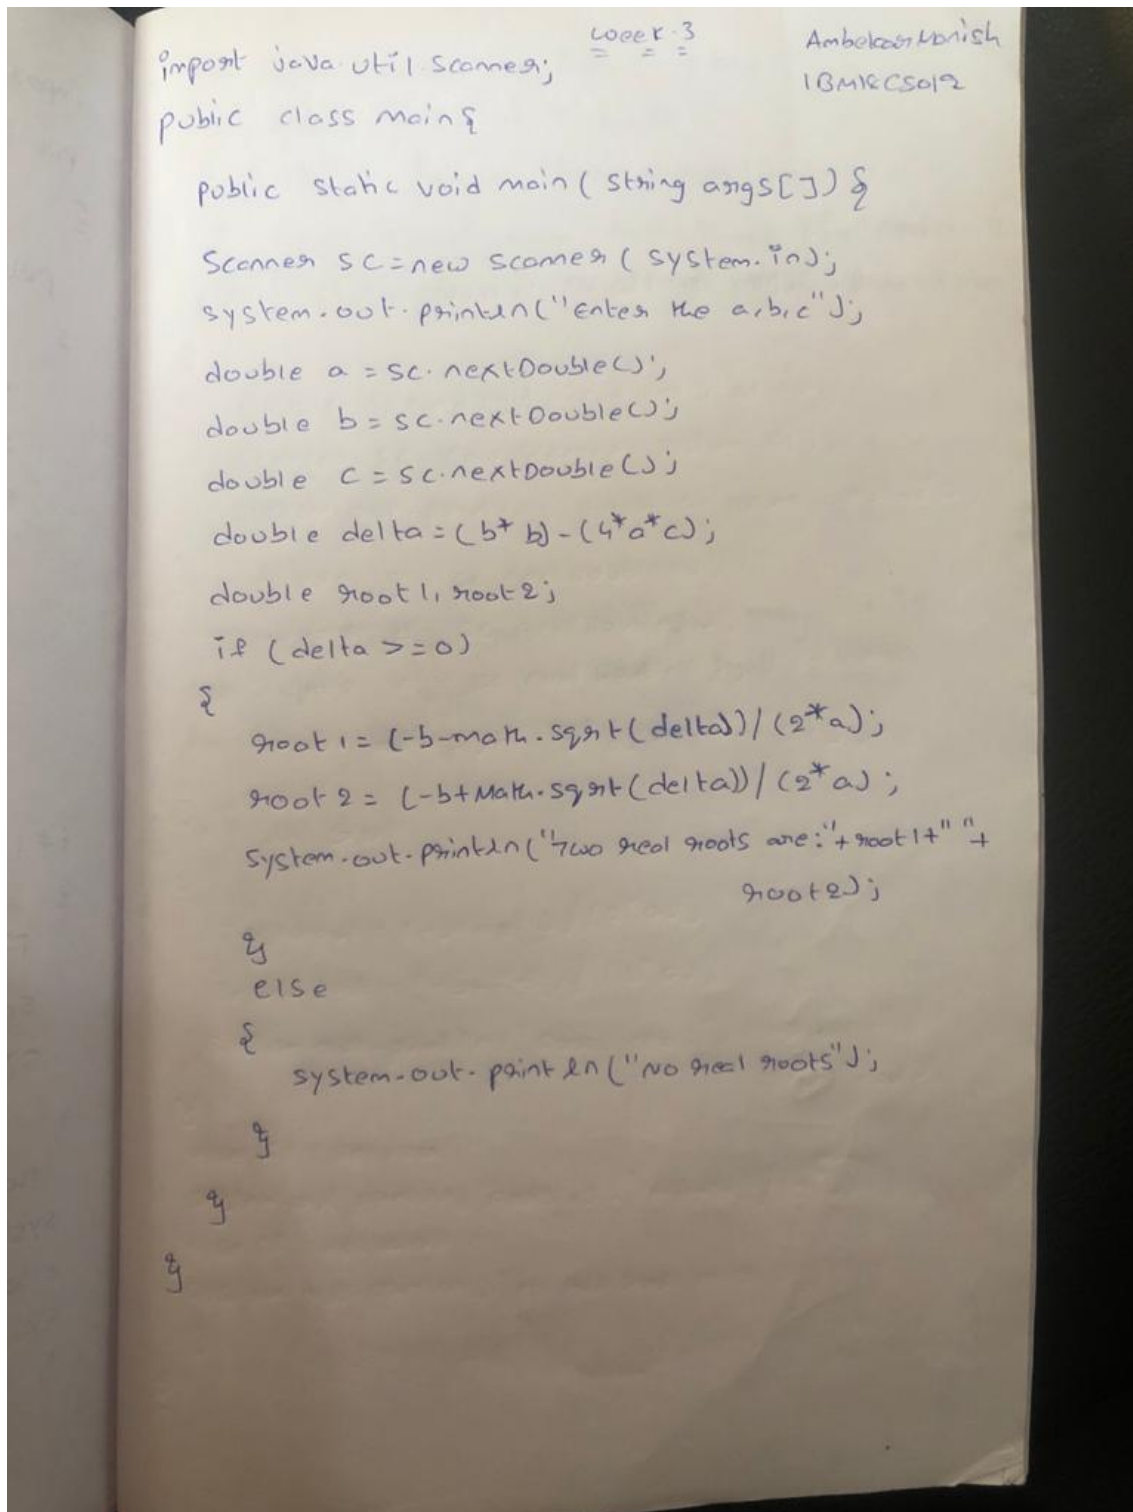 week-3
Ambekar Manish
1BM18CS012
import java.util.scanner;
public class main{
public static void main( string args[]) {
Scanner sc=new scanner ( system.in);
system.out.println("enter the a,b,c");
double a = sc.nextDouble();
double b = sc.nextDouble();
double c = sc.nextDouble();
double delta = (b* b)-(4*a*c);
double root1, root2;
if (delta >=0)
{
root1= (-b-math.sqrt(delta))/(2*a);
root2 = (-b+Math.sqrt(delta))/(2*a);
system.out.println("Two real roots are:"+root1+" "+
root2);
}
else
{
system.out.println("No real roots");
}
}
}